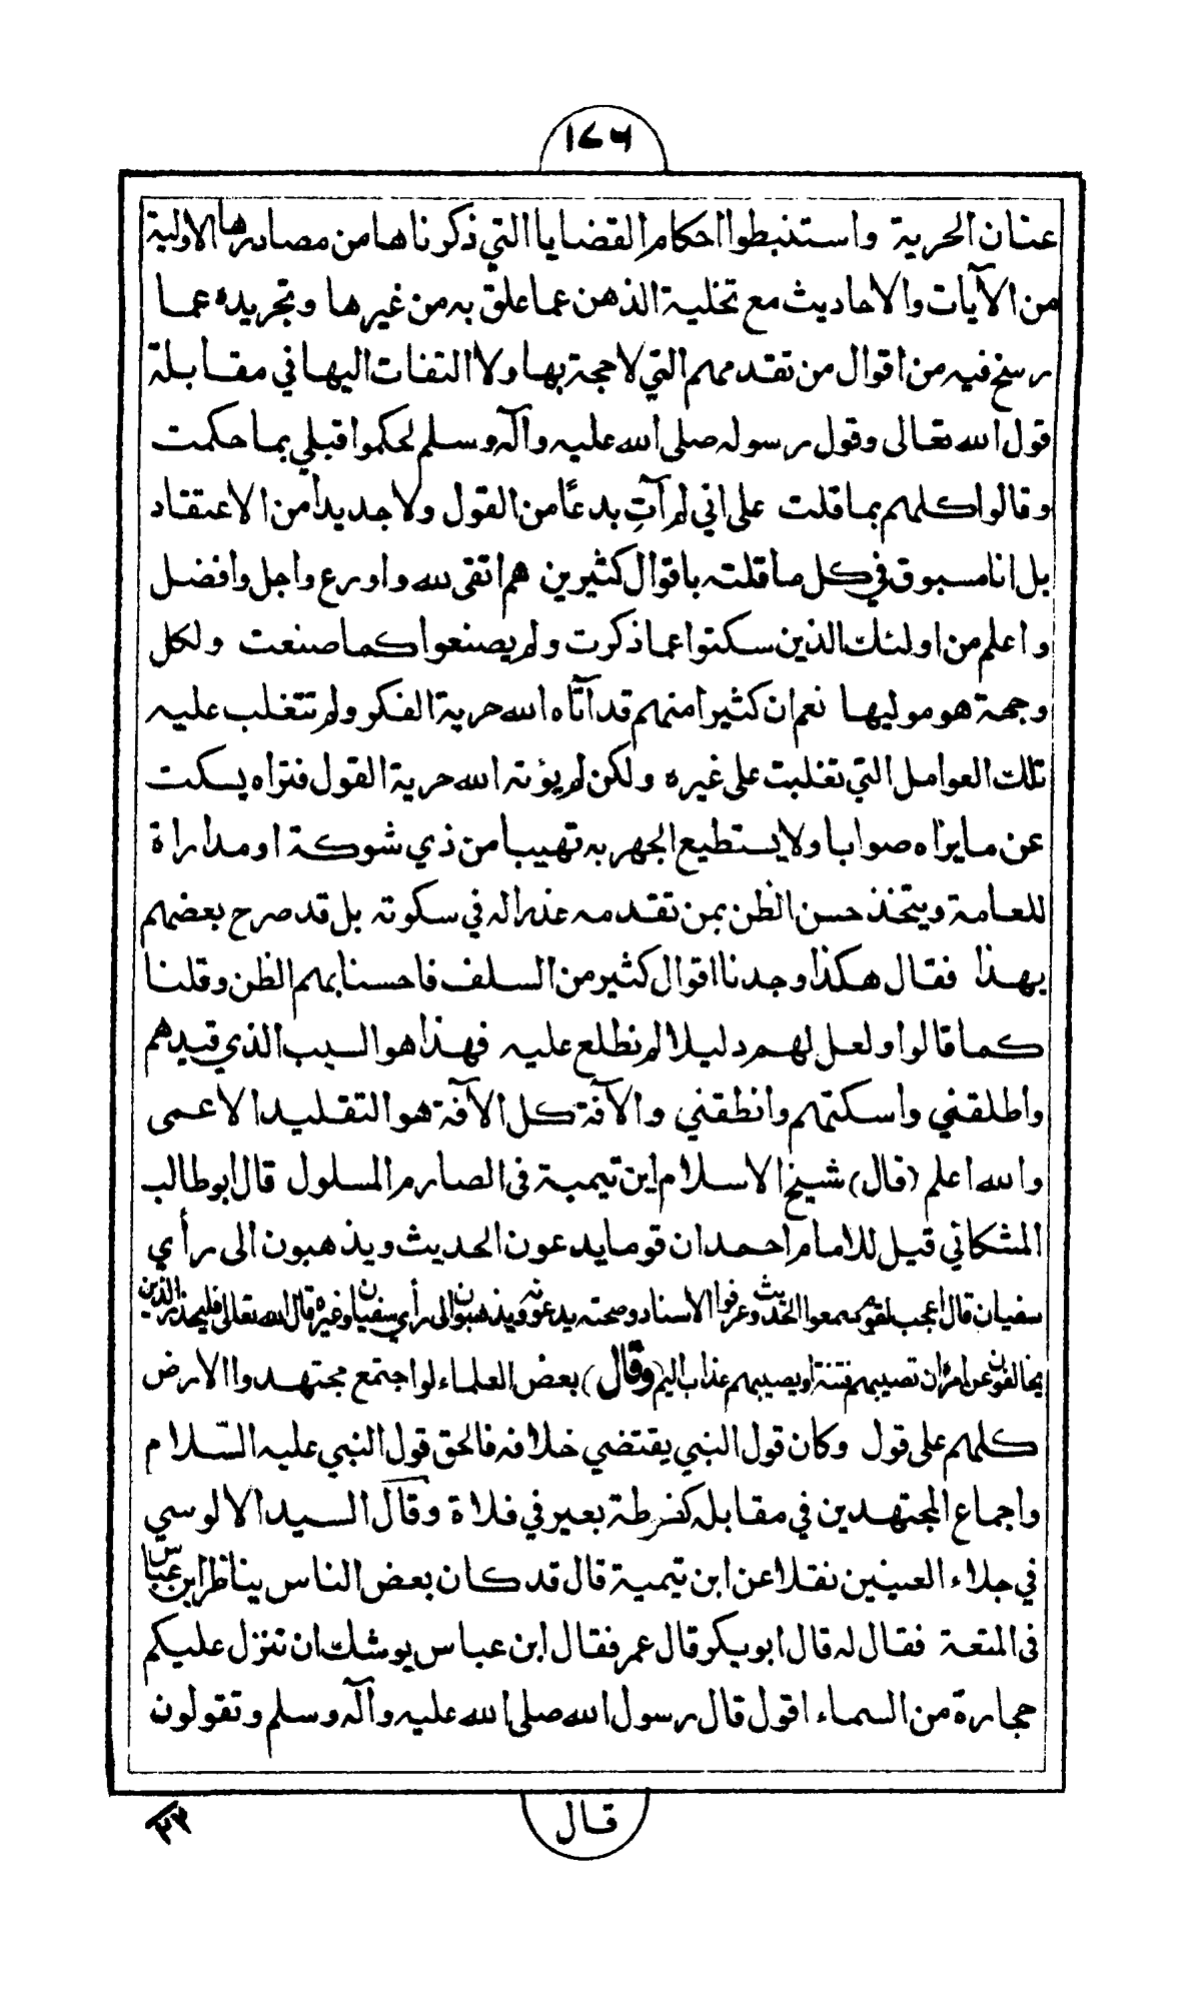 ١٧٦
عنان الحرية واستنبطوا احكام القضايا التي ذكرناها من مصادرها الاولية
من الآيات والاحاديث مع تخلية الذهن عما علق به من غيرها وتجريده عما
رسخ فيه من اقوال من تقدمهم التي لا حجة بها ولا التفات اليها في مقابلة
قول الله تعالى وقول رسوله صلى الله عليه وآله وسلم لحكموا قبلي بما حكمت
وقالوا كلهم بما قلت على اني لم آتِ بدعًا من القول ولا جديدا من الاعتقاد
بل انا مسبوق في كل ما قلته باقوال كثيرين هم اتقى لله واورع واجل وافضل
واعلم من اولئك الذين سكتوا عما ذكرت ولم يصنعوا كما صنعت ولكل
وجهة هو موليها نعم ان كثيرا منهم قد آتاه الله حرية الفكر ولم تتغلب عليه
تلك العوامل التي تغلبت على غيره ولكن لم يؤته الله حرية القول فتراه يسكت
عن ما يراه صوابا ولا يستطيع الجهر به تهيبا من ذي شوكة او مداراة
للعامة ويتخذ حسن الظن بمن تقدمه عذرا له في سكوته بل قد صرح بعضهم
بهذا فقال هكذا وجدنا اقوال كثير من السلف فاحسنا بهم الظن وقلنا
كما قالوا ولعل لهم دليلا لم نطلع عليه فهذا هو السبب الذي قيدهم
واطلقني واسكتهم وانطقني والآفة كل الآفة هو التقليد الاعمى
والله اعلم (قال) شيخ الاسلام ابن تيمية في الصارم المسلول قال ابو طالب
المشكاني قيل للامام احمد ان قوما يدعون الحديث ويذهبون الى رأي
سفيان قال اعجب لقوم سمعوا الحديث وعرفوا الاسناد وصحته يدعونه ويذهبون الى رأي سفيان وغيره قال الله تعالى فليحذر الذين
يخالفون عن امره ان تصيبهم فتنة او يصيبهم عذاب اليم (وقال) بعض العلماء لو اجتمع مجتهدوا الارض
كلهم على قول وكان قول النبي يقتضي خلافه فالحق قول النبي عليه السّلام
واجماع المجتهدين في مقابله كضرطة بعير في فلاة وقال السيد الالوسي
في جلاء العينين نقلا عن ابن تيمية قال قد كان بعض الناس يناظر ابن عباس
في المتعة فقال له قال ابو بكر قال عمر فقال ابن عباس يوشك ان تنزل عليكم
حجارة من السماء اقول قال رسول الله صلى الله عليه وآله وسلم وتقولون
قال
٢٣